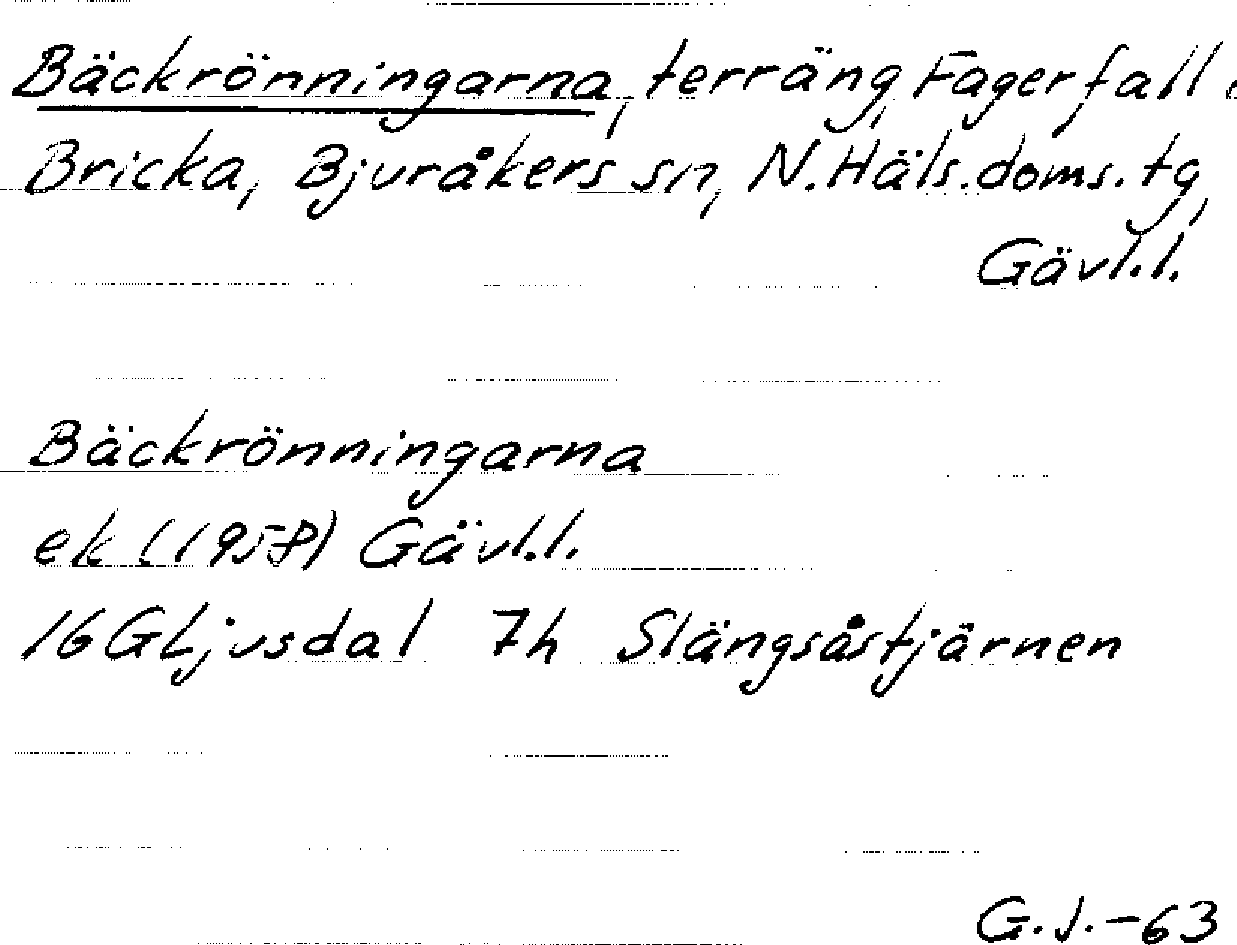 Bäckrönningarna, terräng, Fagerfall,
Bricka, Bjuråkers sn, N.Häls.doms.tg,
Gävl.l.
Bäckrönningarna
ek (1958) Gävl.l.
16G Ljusdal 7h Slängsåstjärnen
G.J.-63